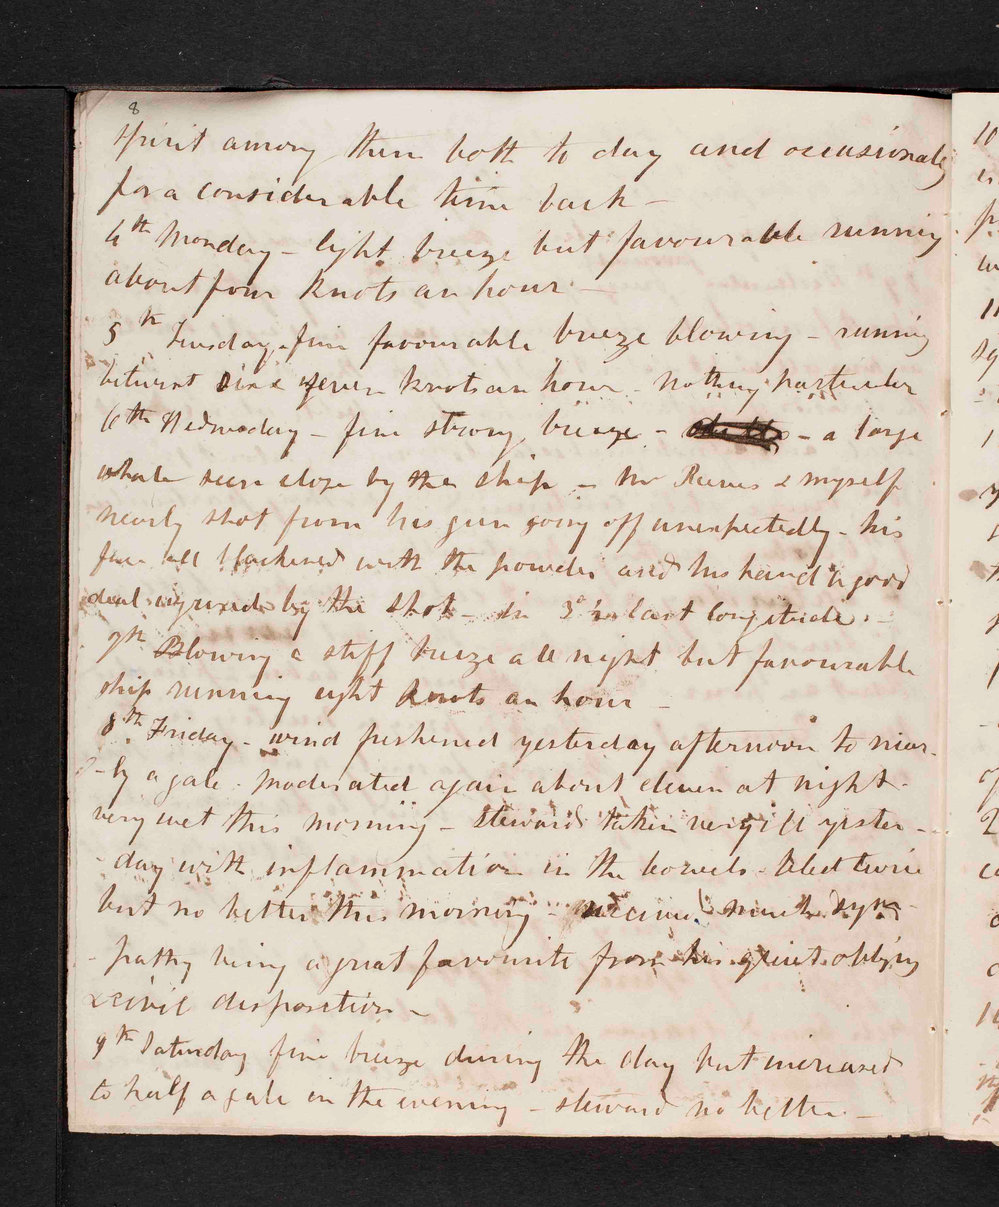 8
spirit among them both to day and occasionally
for a considerable time back -
4th Monday - light breeze but favourable running
about four knots an hour -
5th Tuesday - fine favourable breeze blowing - running
betwixt six & seven knots an hour - nothing particular
6th Wednesday - fine strong breeze - - a large
whale seen close by the ship - Mr Reeves & myself
nearly shot from his gun going off unexpectedly - his
face all blackened with the powder and his hand a good
deal injured by the shot - in 3° last longitude -
7th Blowing a stiff breeze all night but favourable
ship running eight knots an hour -
8th Friday - wind freshened yesterday afternoon to near-
-ly a gale - moderated again about eleven at night -
very wet this morning - steward taken very ill yester-
-day with inflammation in the bowels - bled twice
but no better this morning - receives much sym-
-pathy being a great favourite from his quiet obliging
& civil disposition -
9th Saturday fine breeze during the day but increased
to half a gale in the evening - steward no better -